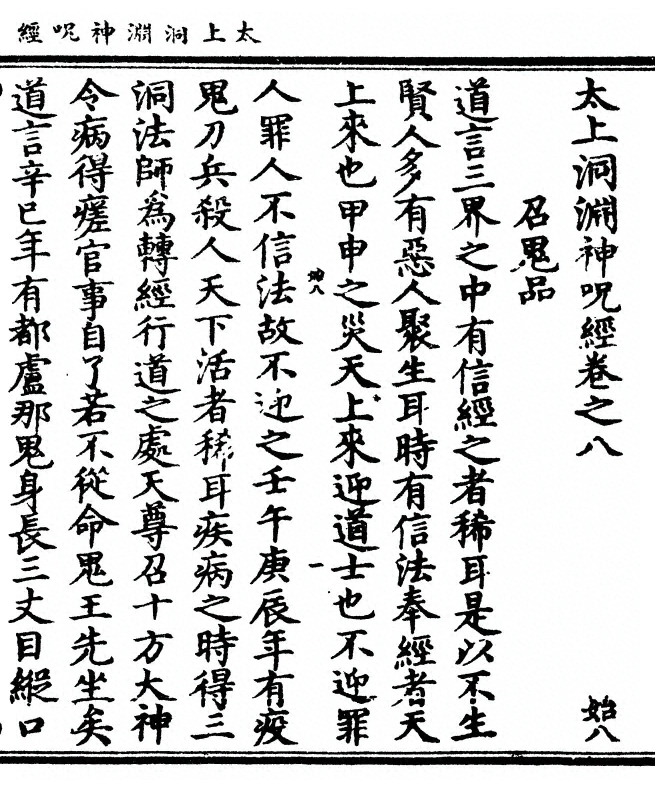 太上洞淵神呪經
太上洞淵神呪經卷之八
始八
召鬼品
道言三界之中有信經之者稀耳是以不生
賢人多有惡人聚生耳時有信法奉經者天
上來也甲申之災天上來迎道士也不迎罪
始八
一
人罪人不信法故不迎之壬午庚辰年有疫
鬼刀兵殺人天下活者稀耳疾病之時得三
洞法師爲轉經行道之處天尊召十方大神
令病得瘥官事自了若不從命鬼王先坐矣
道言辛巳年有都盧那鬼身長三丈目縱口